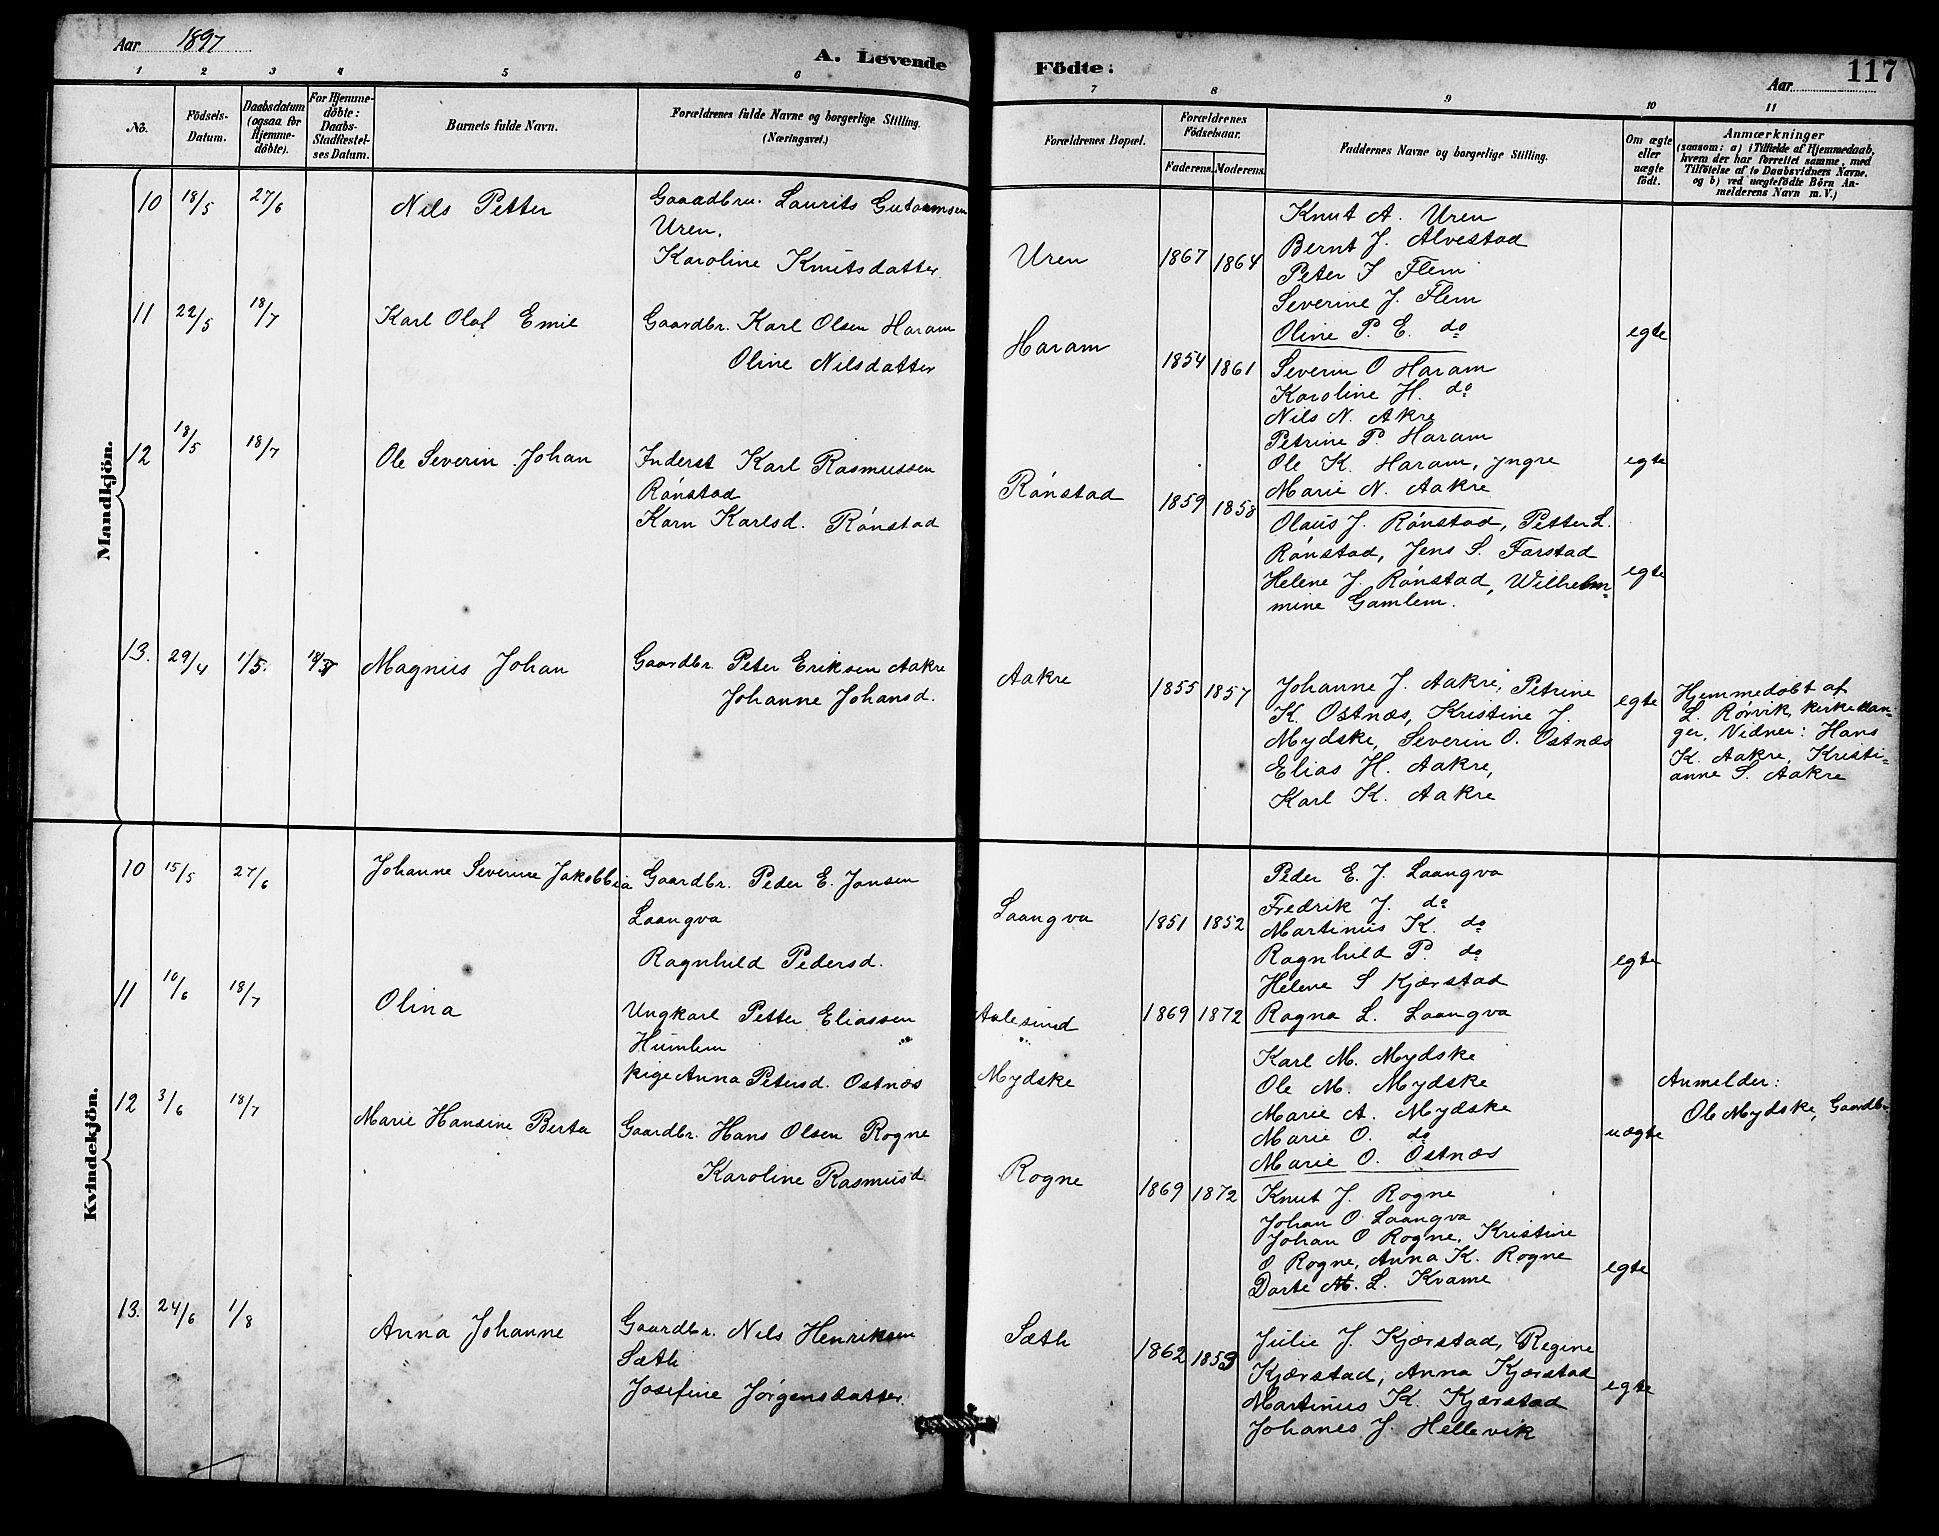 Aar 1897
A. Levende
1 2 3 4 5 6
No.
Födsels-
Datum.
Daabsdatum
(ogsaa for
Hjemme-
döbte).
For Hjemme-
döbte:
Daabs-
Stadfæstel-
ses Datum.
Barnets fulde Navn.
Forældrenes fulde Navne og borgerlige Stilling.
(Næringsvei.)
Mandkjön.
10 18/5 27/6 Nils Petter Gaardbru. Laurits
Uren.
Karoline Knutsdatter
11 22/5 18/7 Karl Olaf Emil Gaardbr. Karl Olsen Haram
Oline Nilsdatter
12 18/5 18/7 Ole Severin Johan Inderst Karl Rasmussen
Rónstad
Karn Karlsd. Rónstad
13. 29/4 1/5. Magnus Johan Gaardbr. Peter Eriksen Aakre
Johanne Johansd.
Kvindekjön.
10 15/5 27/6 Johanne Severine Jakobbia Gaardbr. Peder E. Jansen
Laangva
Ragnhild Pedersd.
11 10/6 18/7 Olina Ungkarl Petter Eliassen
Humlem
pige Anna Petersd. Ostnæs
12 3/6 18/7 Marie Hansine Berta Gaardbr. Hans Olsen Rogne
Karoline Rasmusd.
13. 24/6 1/8 Anna Johanne Gaardbr. Nils Henriksen
Sæth
Josefine Jórgensdatter
Födte:
Aar
117
7 8 9 10 11
Forældrenes Bopæl.
Forældrenes
Födselsaar.
Faderens. Moderens.
Faddernes Navne og borgerlige Stilling.
Om ægte
eller
uægte
födt.
Anmærkninger
(saasom: a) i Tilfælde af Hjemmedaab,
hvem der har forrettet samme, med
Tilföielse af to Daabsvidners Navne.
og b) ved uægtefödte Börn An-
melderens Navn m. V.)
Uren 1867 1864 Knut A. Uren
Bernt J. Alvestad
Peter J Flem
Severine J. Flem
Oline P. E. do egte
Haram 1854 1861 Severin O Haram
Karoline H. do
Nils N. Akre
Petrine P. Haram
Ole K. Haram, yngre egte
Marie N. Aakre
Rónstad 1859 1858 Olaus J. Rónstad, Petter L.
Rónstad, Jens S. Farstad
Helene J. Rónstad, Wilhelm- egte
mine Gamlem.
Aakre 1855 1857 Johanne J. Aakre, Petrine egte Hjemmedóbt af
K. Ostnæs, Kristine J. L. Rórvik, kirkesan-
Mydske, Severin O. Ostnæs ger, Vidner: Hans
Elias H. Aakre, K. Aakre, Kristi-
Karl K. Aakre anne S. Aakre
Laangva 1851 1852 Peder E. J. Laangva
Fredrik J. do
Martinus K. do
Ragnhild P. do egte
Helene S Kjærstad
Ragna L. Laangva
Aalesund 1869 1872
Mydske Karl M. Mydske
Ole M. Mydske Anmelder:
Marie A. Mydske Ole Mydske, Gaardbr
Marie O. do uægte
Marie O. Ostnæs
Rogne 1869 1872 Knut J. Rogne
Johan O Laangva
Johan O Rogne, Kristine
O Rogne, Anna K. Rogne egte
Dorte M. L. Kvame
Sæth 1862 1859 Julie J. Kjærstad, Regine
Kjærstad, Anna Kjærstad egte
Martinus K. Kjærstad
Johanes J. Hellevik